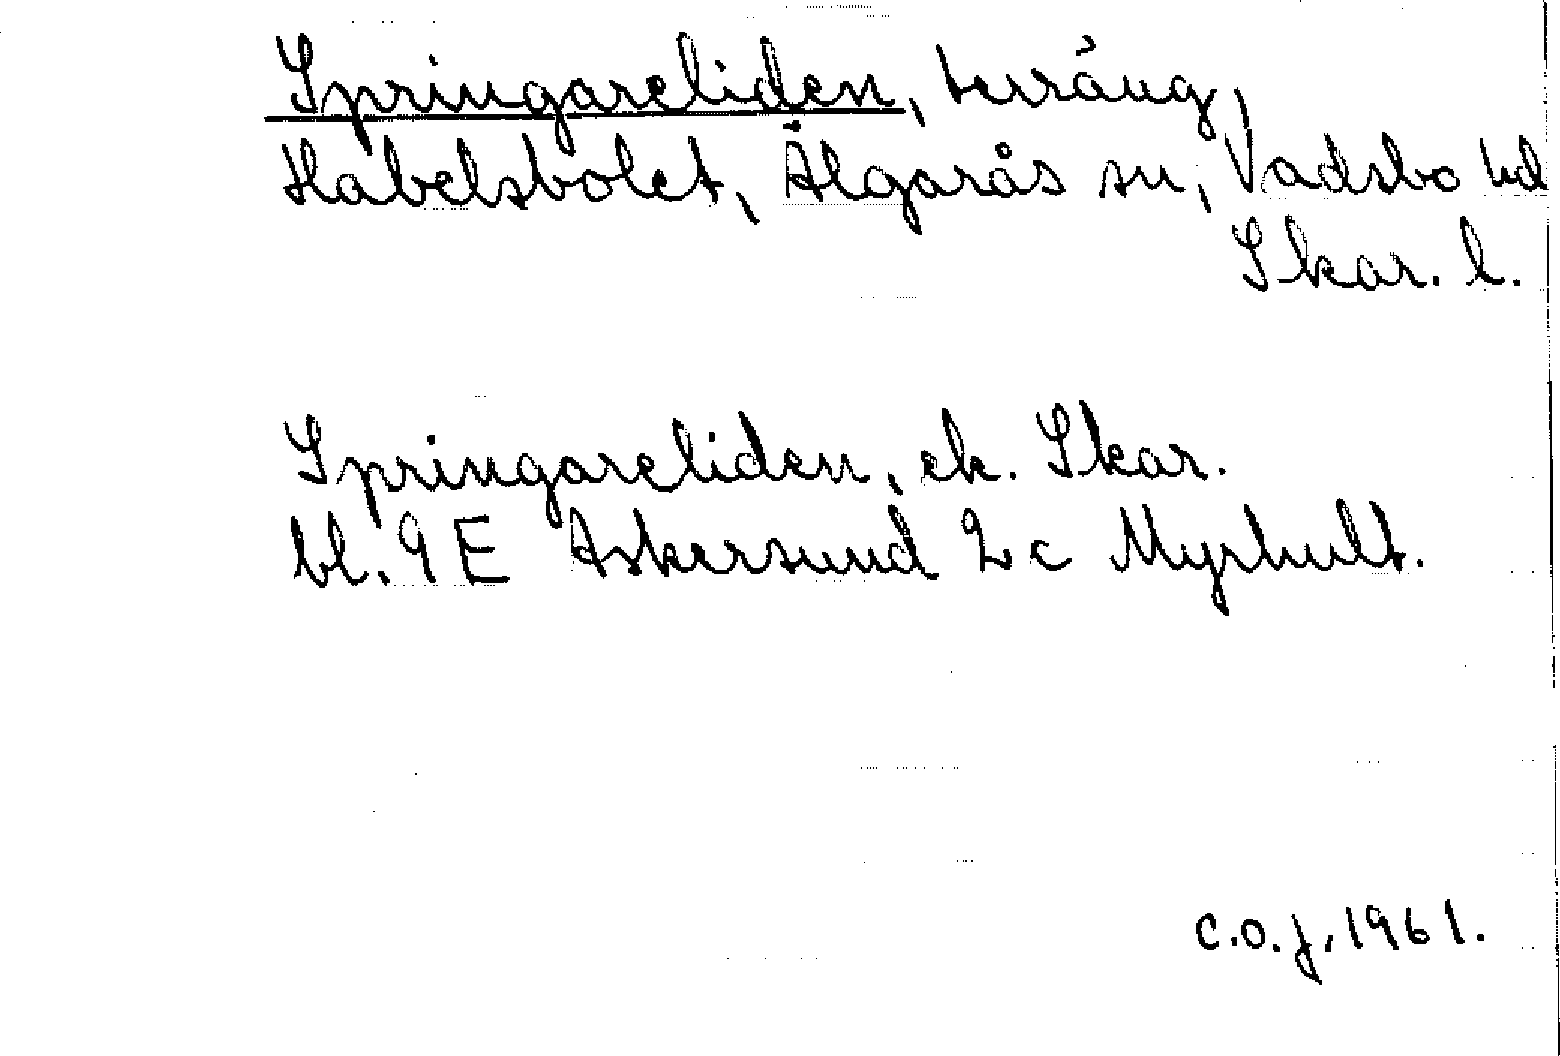 Springareliden, terräng,
Habelsbolet, Älgarås sn, Vadsbo hd
Skar. l.
Springareliden, ek. Skar.
bl. 9 E Askersund 2 c Myrhult.
C.O.J. 1961.